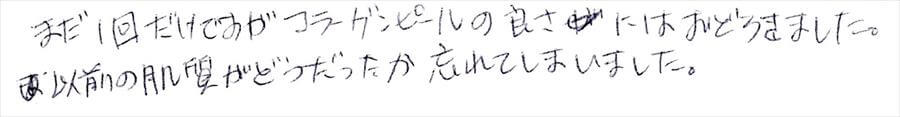 まだ1回だけですがコラーゲンピールの良さにはおどろきました。
以前の肌質がどうだったか忘れてしまいました。